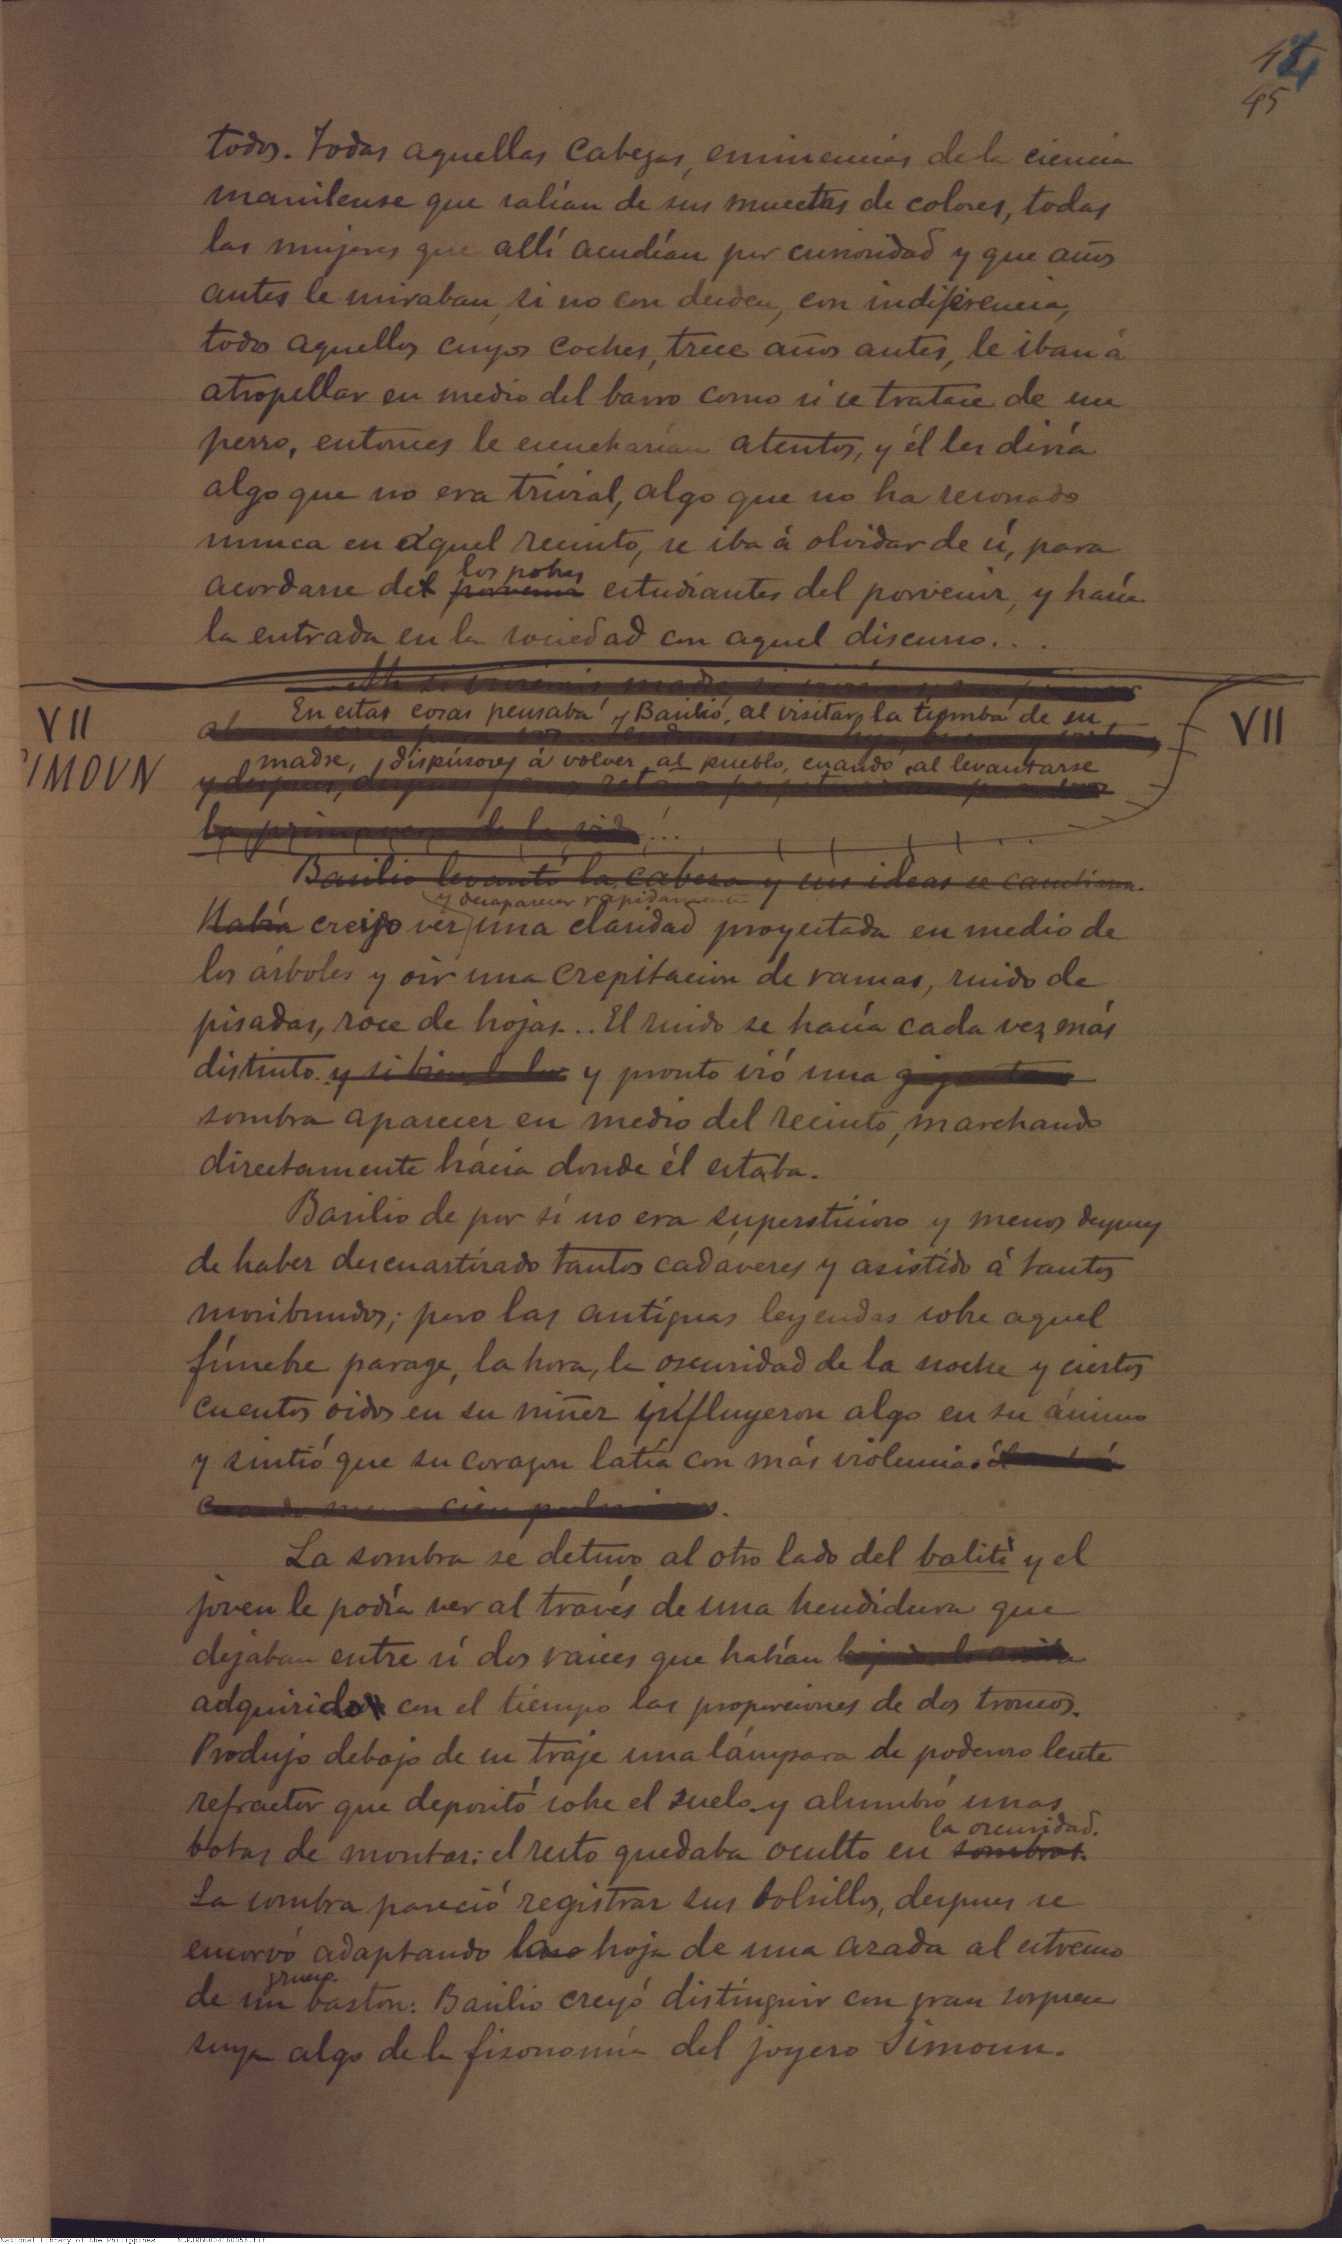 45
todos. Todas aquellas cabezas, eminencias de la ciencia
manilense que salían de sus mucetas de colores, todas
las mujeres que allí acudían por curiosidad y que años
antes le miraban, si no con desden, con indiferencia,
todos aquellos cuyos coches, trece años antes, le iban á
atropellar en medio del barro como si se tratase de un
perro, entonces le escucharían atentos, y él les diría
algo que no era trivial, algo que no ha resonado
nunca en aquel recinto, se iba á olvidar de sí, para
los pobres
acordarse de estudiantes del porvenir, y hacía
la entrada en la sociedad con aquel discurso...
VII
SIMOUN
VII
En estas cosas pensaba y Basilio, al visitar la tumba de su
madre, dispúsose á volver al pueblo, cuando al levantarse
Basilio levantó la cabeza y sus ideas se
y desaparecer rapidamente
Había creijo ver una claridad proyectada en medio de
los árboles y oir una crepitacion de ramas, ruido de
pisadas, roce de hojas... El ruido se hacía cada vez más
distinto y si bien la luz y pronto vió una gigantesca
sombra aparecer en medio del recinto, marchando
directamente hácia donde él estaba.
Basilio de por sí no era supersticioso y menos despues
de haber descuartizado tantos cadaveres y asistido á tantos
moribundos; pero las antiguas leyendas sobre aquel
fúnebre parage, la hora, la oscuridad de la noche y ciertos
cuentos oidos en su niñez influyeron algo en su ánimo
y sintió que su corazon latía con más violencia.
La sombra se detuvo al otro lado del balitì y el
joven le podía ver al través de una hendidura que
dejaban entre sí dos raices que habían
adquirido con el tiempo las proporciones de dos troncos.
Produjo debajo de su traje una lámpara de poderoso lente
refractor que depositó sobre el suelo y alumbró unas
la oscuridad.
botas de montar: el resto quedaba oculto en sombras.
La sombra pareció registrar sus bolsillos, despues se
encorvó adaptando la hoja de una azada al estremo
grueso
de un baston: Basilio creyó distinguir con gran sorpresa
suya algo de la fisonomía del joyero Simoun.